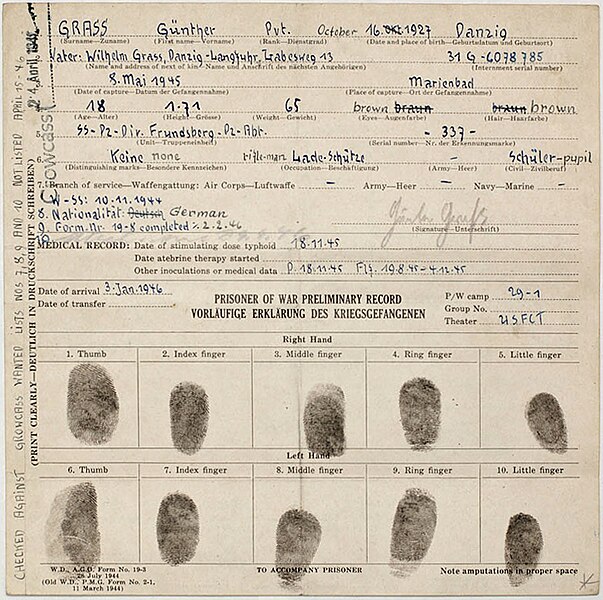 GRASS Günther Pvt. October 16. Okt 1927 Danzig
(Surname—Zuname) (First name—Vorname) (Rank—Dienstgrad) (Date and place of birth—Geburtsdatum und Geburtsort)
Vater: Wilhelm Grass, Danzig-Langfuhr, Labesweg 13 31 G-6078785
(Name and address of next of kin—Name und Anschrift des nächsten Angehörigen) (Internment serial number)
8. Mai 1945 Marienbad
(Date of capture—Datum der Gefangennahme) (Place of capture—Ort der Gefangennahme)
18 1.71 65 brown braun braun brown
(Age—Alter) (Height—Grösse) (Weight—Gewicht) (Eyes—Augenfarbe) (Hair—Haarfarbe)
5. SS-Pz-Div. Frundsberg-Pz-Abt. - 337 -
(Unit—Truppeneinheit) (Serial number—Nr. der Erkennungsmarke)
6. Keine none rifle-man Lade-Schütze - Schüler-pupil
(Distinguishing marks—Besondere Kennzeichen) (Occupation—Beschäftigung) (Army—Heer) (Civil—Zivilberuf)
7. Branch of service—Waffengattung: Air Corps—Luftwaffe - Army—Heer - Navy—Marine -
W-SS: 10.11.1944
8. Nationalität: Deutsch German
9. Form. Nr. 19-8 completed: 2.2.46
(Signature—Unterschrift)
MEDICAL RECORD: Date of stimulating dose typhoid 18.11.45
Date atebrine therapy started
Other inoculations or medical data P. 18.11.45 19.8.45-4.12.45
Date of arrival 3. Jan. 1946
Date of transfer
PRISONER OF WAR PRELIMINARY RECORD
VORLÄUFIGE ERKLÄRUNG DES KRIEGSGEFANGENEN
P/W camp 29-1
Group No.
Theater USFET
Right Hand
1. Thumb 2. Index finger 3. Middle finger 4. Ring finger 5. Little finger
Left Hand
6. Thumb 7. Index finger 8. Middle finger 9. Ring finger 10. Little finger
W.D., A.G.O. Form No. 19-3
26 July 1944
(Old W.D., P.M.G. Form No. 2-1,
11 March 1944)
TO ACCOMPANY PRISONER
Note amputations in proper space
(PRINT CLEARLY—DEUTLICH IN DRUCKSCHRIFT SCHREIBEN)
CHECKED AGAINST CROWCASS WANTED LISTS NOS 7, 8, 9 AND 10 NOT LISTED APRIL 15-46